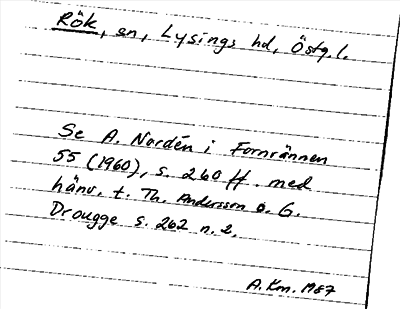 Rök, sn, Lysings hd, Östg.l.
Se A. Nordén i Fornvännen
55 (1960), s. 260 ff. med
hänv. t. Th. Andersson o. G.
Drougge s. 262 n. 2.
A.Km. 1987